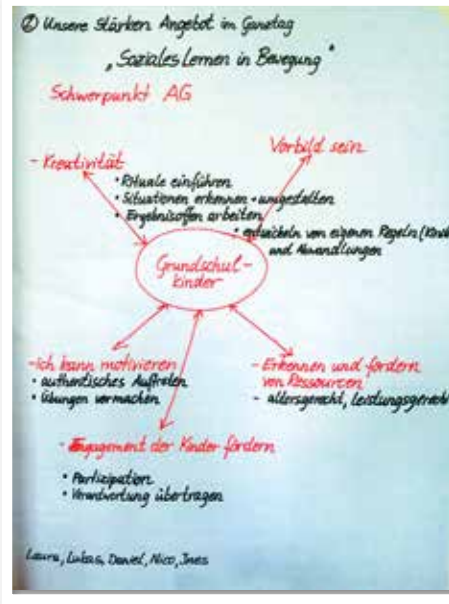 ② Unsere Stärken Angebot im Ganztag
„Soziales Lernen in Bewegung"
Schwerpunkt AG
- Kreativität
Vorbild sein
• Rituale einführen
• Situationen erkennen + umgestalten
• Ergebnisoffen arbeiten
• entwickeln von eigenen Regeln (Kind
und Abwandlungen
Grundschul-
kinder
- ich kann motivieren
• authentisches Auftreten
• Übungen vormachen
- Erkennen und fördern
von Ressourcen
- altersgerecht, leistungsgerecht
- Engagement der Kinder fördern
• Partizipation
• Verantwortung übertragen
Laura, Lukas, Daniel, Nico, Ines